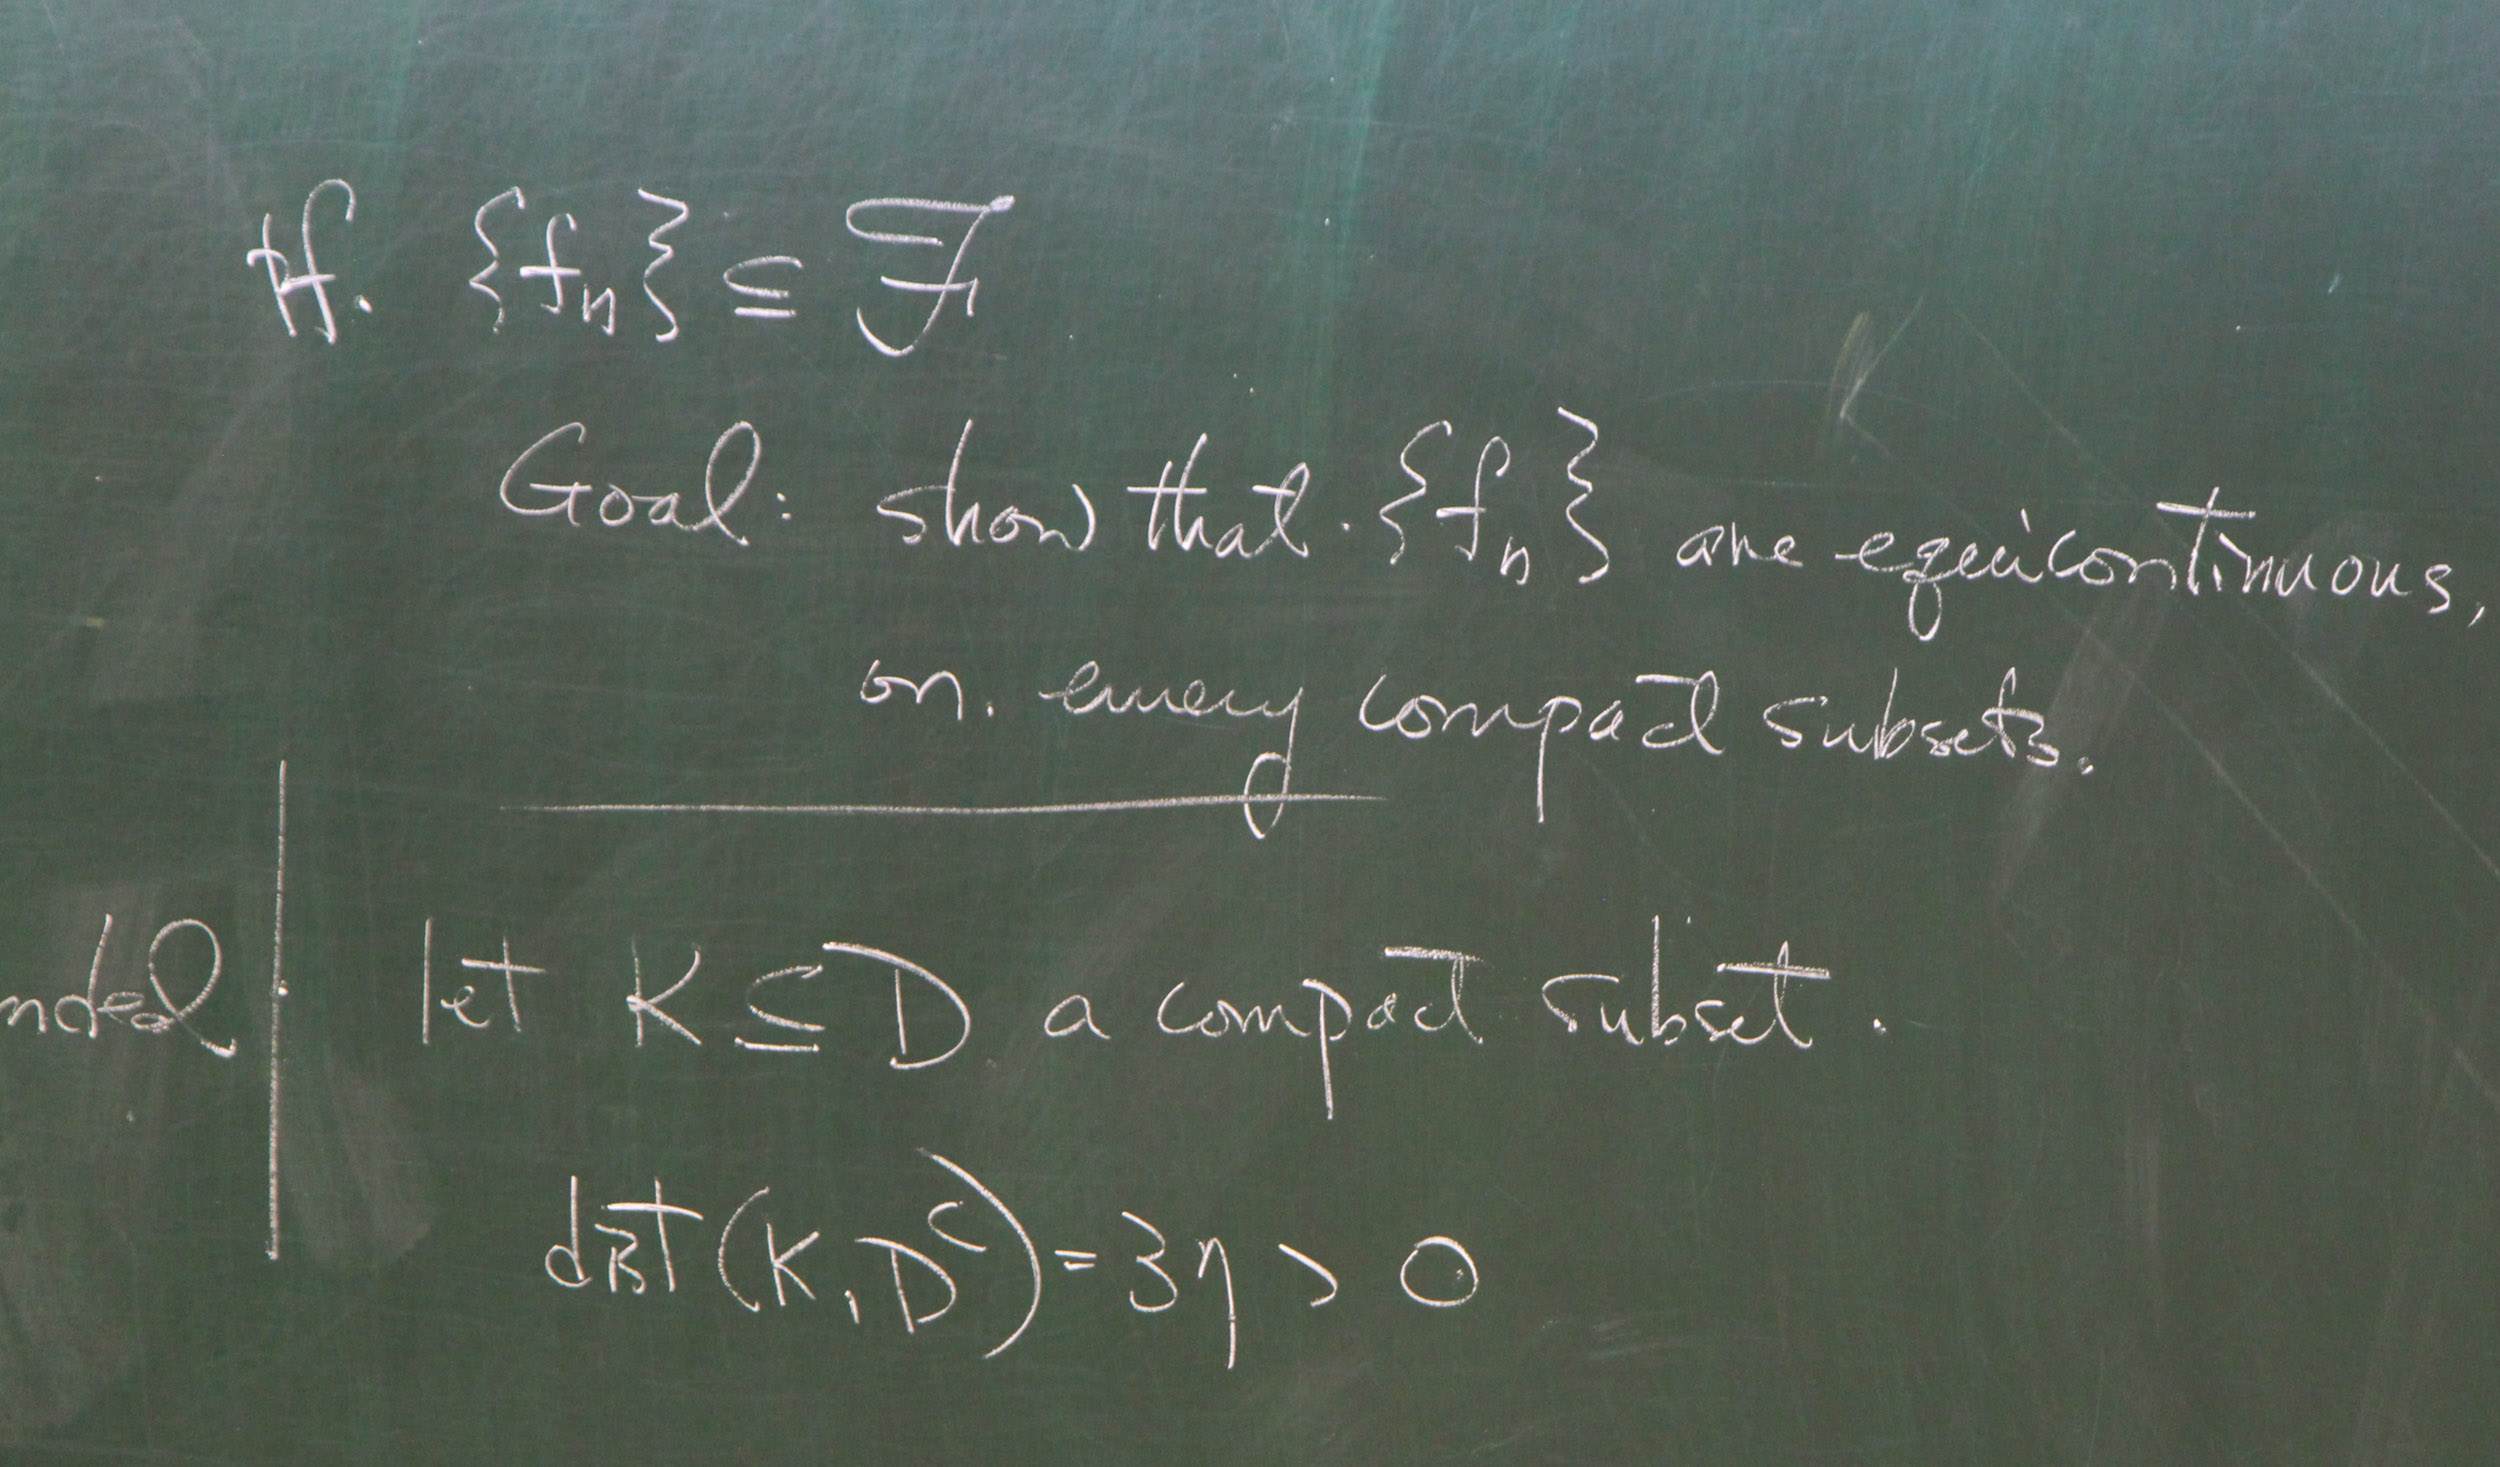 Pf. {fn} ⊆ ℱ
Goal: show that {fn} are equicontinuous,
on. every compact subsets.
nded
let K ⊆ D a compact subset.
dist(K, Dᶜ) = 3η > 0